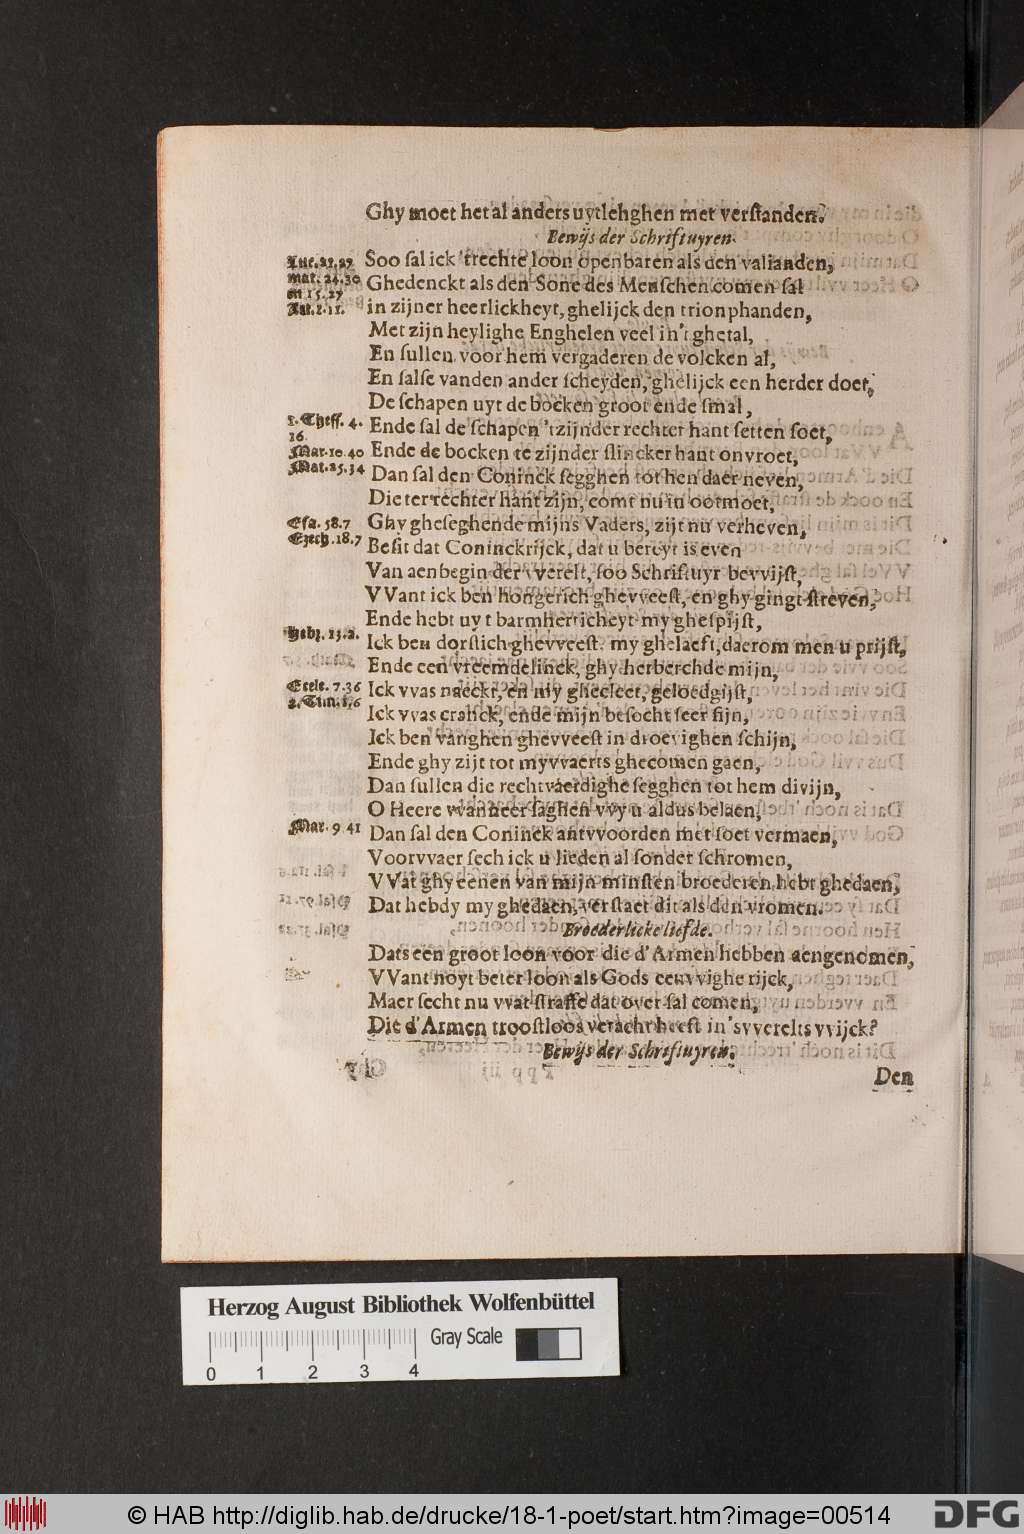 Ghy moet het al anders uytlehghen met verſtanden?
Bewijs der Schriftuyren.
Luc. 21. 27
Soo ſal ick 'trechte loon openbaren als den valianden,
mat. 24. 30
Ghedenckt als den Sone des Menſchen comen ſal
en 15. 27
in zijner heerlickheyt, ghelijck den trionphanden,
Act. 1. 11.
Met zijn heylighe Enghelen veel in't ghetal,
En ſullen voor hem vergaderen de volcken al,
En ſalſe vanden ander ſcheyden, ghelijck een herder doet,
De ſchapen uyt de bocken groot ende ſmal,
1. Theſſ. 4. 16.
Ende ſal de ſchapen 'tzijnder rechter hant ſetten ſoet,
Mar. 10. 40
Ende de bocken te zijnder ſlincker hant onvroet,
Mat. 25. 34
Dan ſal den Coninck ſegghen tot hen daer neven,
Die ter rechter hant zijn, comt nu in ootmoet,
Eſa. 58. 7
Ghy gheſeghende mijns Vaders, zijt nu verheven,
Ezech. 18. 7
Beſit dat Coninckrijck, dat u bereyt is even
Van aenbegin der vverelt, ſoo Schriftuyr bevvijſt,
VVant ick ben hongerich ghevveeſt, en ghy gingt ſtreven,
Ende hebt uyt barmherticheyt my gheſpijſt,
Hebr. 13. 2.
Ick ben dorſtich ghevveeſt, my ghelaeft, daerom men u prijſt,
Ende een vreemdelinck, ghy herberchde mijn,
Eccle. 7. 36
Ick vvas naeckt, en my ghecleet, geloedgijſt,
2. Tim. 1. 6
Ick vvas cranck, ende mijn beſocht ſeer fijn,
Ick ben vanghen ghevveeſt in droevighen ſchijn,
Ende ghy zijt tot myvvaerts ghecomen gaen,
Dan ſullen die rechtvaerdighe ſegghen tot hem divijn,
O Heere vvanneer ſaghen vvy u aldus belaen,
Mar. 9 41
Dan ſal den Coninck antvvoorden met ſoet vermaen,
Voorvvaer ſech ick u lieden al ſonder ſchromen,
VVat ghy eenen van mijn minſten broederen hebt ghedaen,
Dat hebdy my ghedaen, verſtaet dit als den vromen.
Broederlicke liefde.
Dats een groot loon voor die d'Armen hebben aengenomen,
VVant noyt beter loon als Gods eeuvvighe rijck,
Maer ſecht nu vvat ſtraffe dat over ſal comen,
Die d'Armen trooſtloos veracht heeft in 'svverelts vvijck?
Bewijs der Schriftuyren.
Den
Herzog August Bibliothek Wolfenbüttel
Gray Scale
0 1 2 3 4
© HAB http://diglib.hab.de/drucke/18-1-poet/start.htm?image=00514
DFG